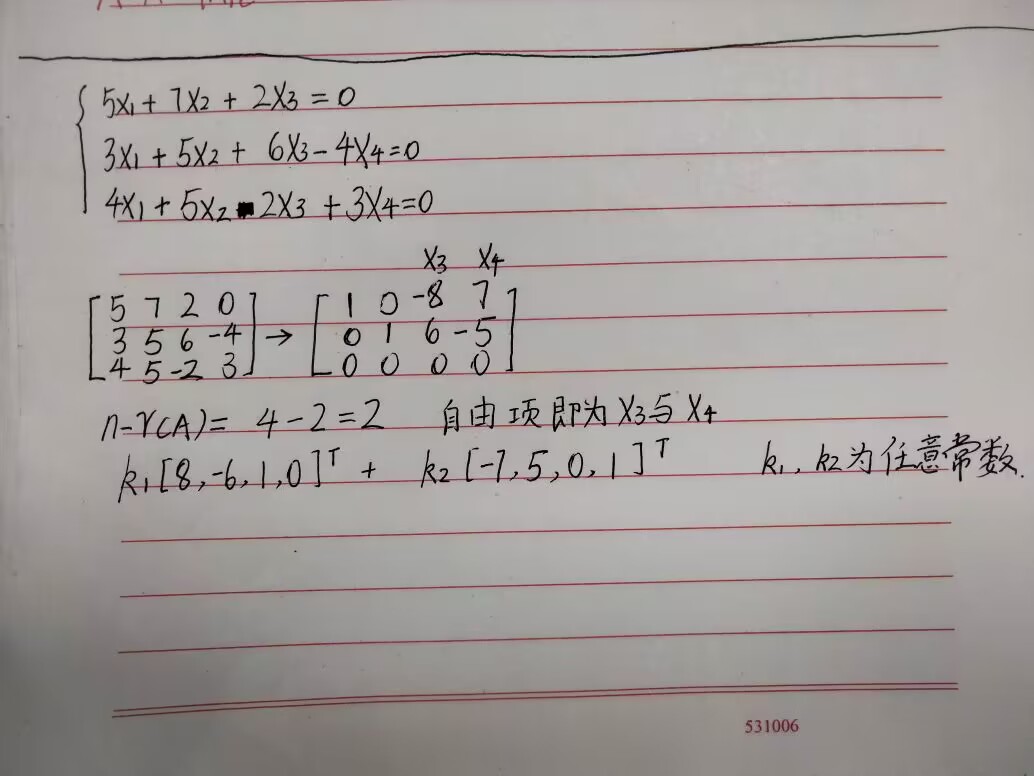 5x₁ + 7x₂ + 2x₃ = 0
3x₁ + 5x₂ + 6x₃ - 4x₄ = 0
4x₁ + 5x₂ - 2x₃ + 3x₄ = 0
x₃ x₄
[5 7 2 0] → [1 0 -8 7]
[3 5 6 -4] [0 1 6 -5]
[4 5 -2 3] [0 0 0 0]
n-r(A) = 4-2 = 2 自由项即为 x₃与 x₄
k₁[8,-6,1,0]ᵀ + k₂[-7,5,0,1]ᵀ k₁, k₂为任意常数.
531006